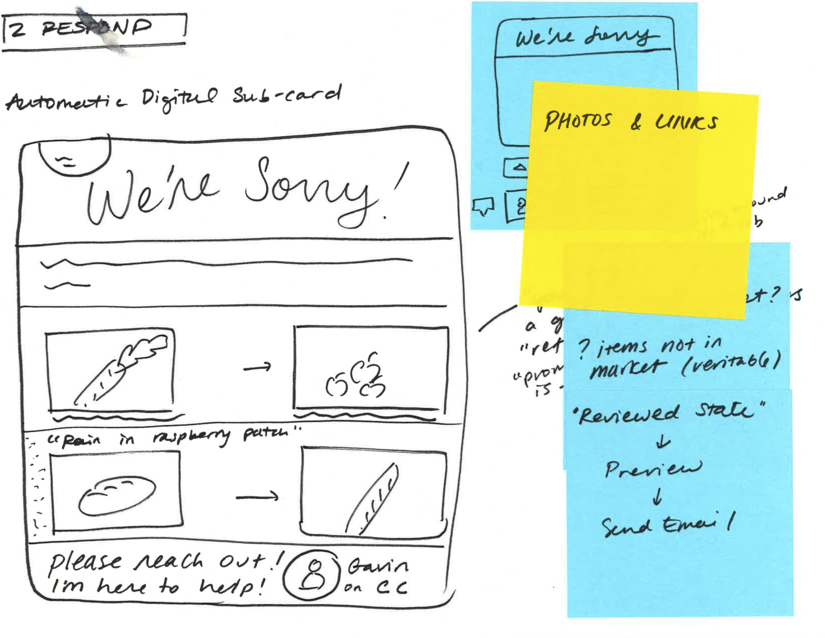 2 RESPOND
Automatic Digital Sub-card
We're Sorry!
"Rain in raspberry patch"
please reach out!
I'm here to help!
Gavin
on CC
We're Sorry
PHOTOS & LINKS
? is
a
? items not in
market (veritable)
is
"Reviewed State"
↓
Preview
↓
Send Email